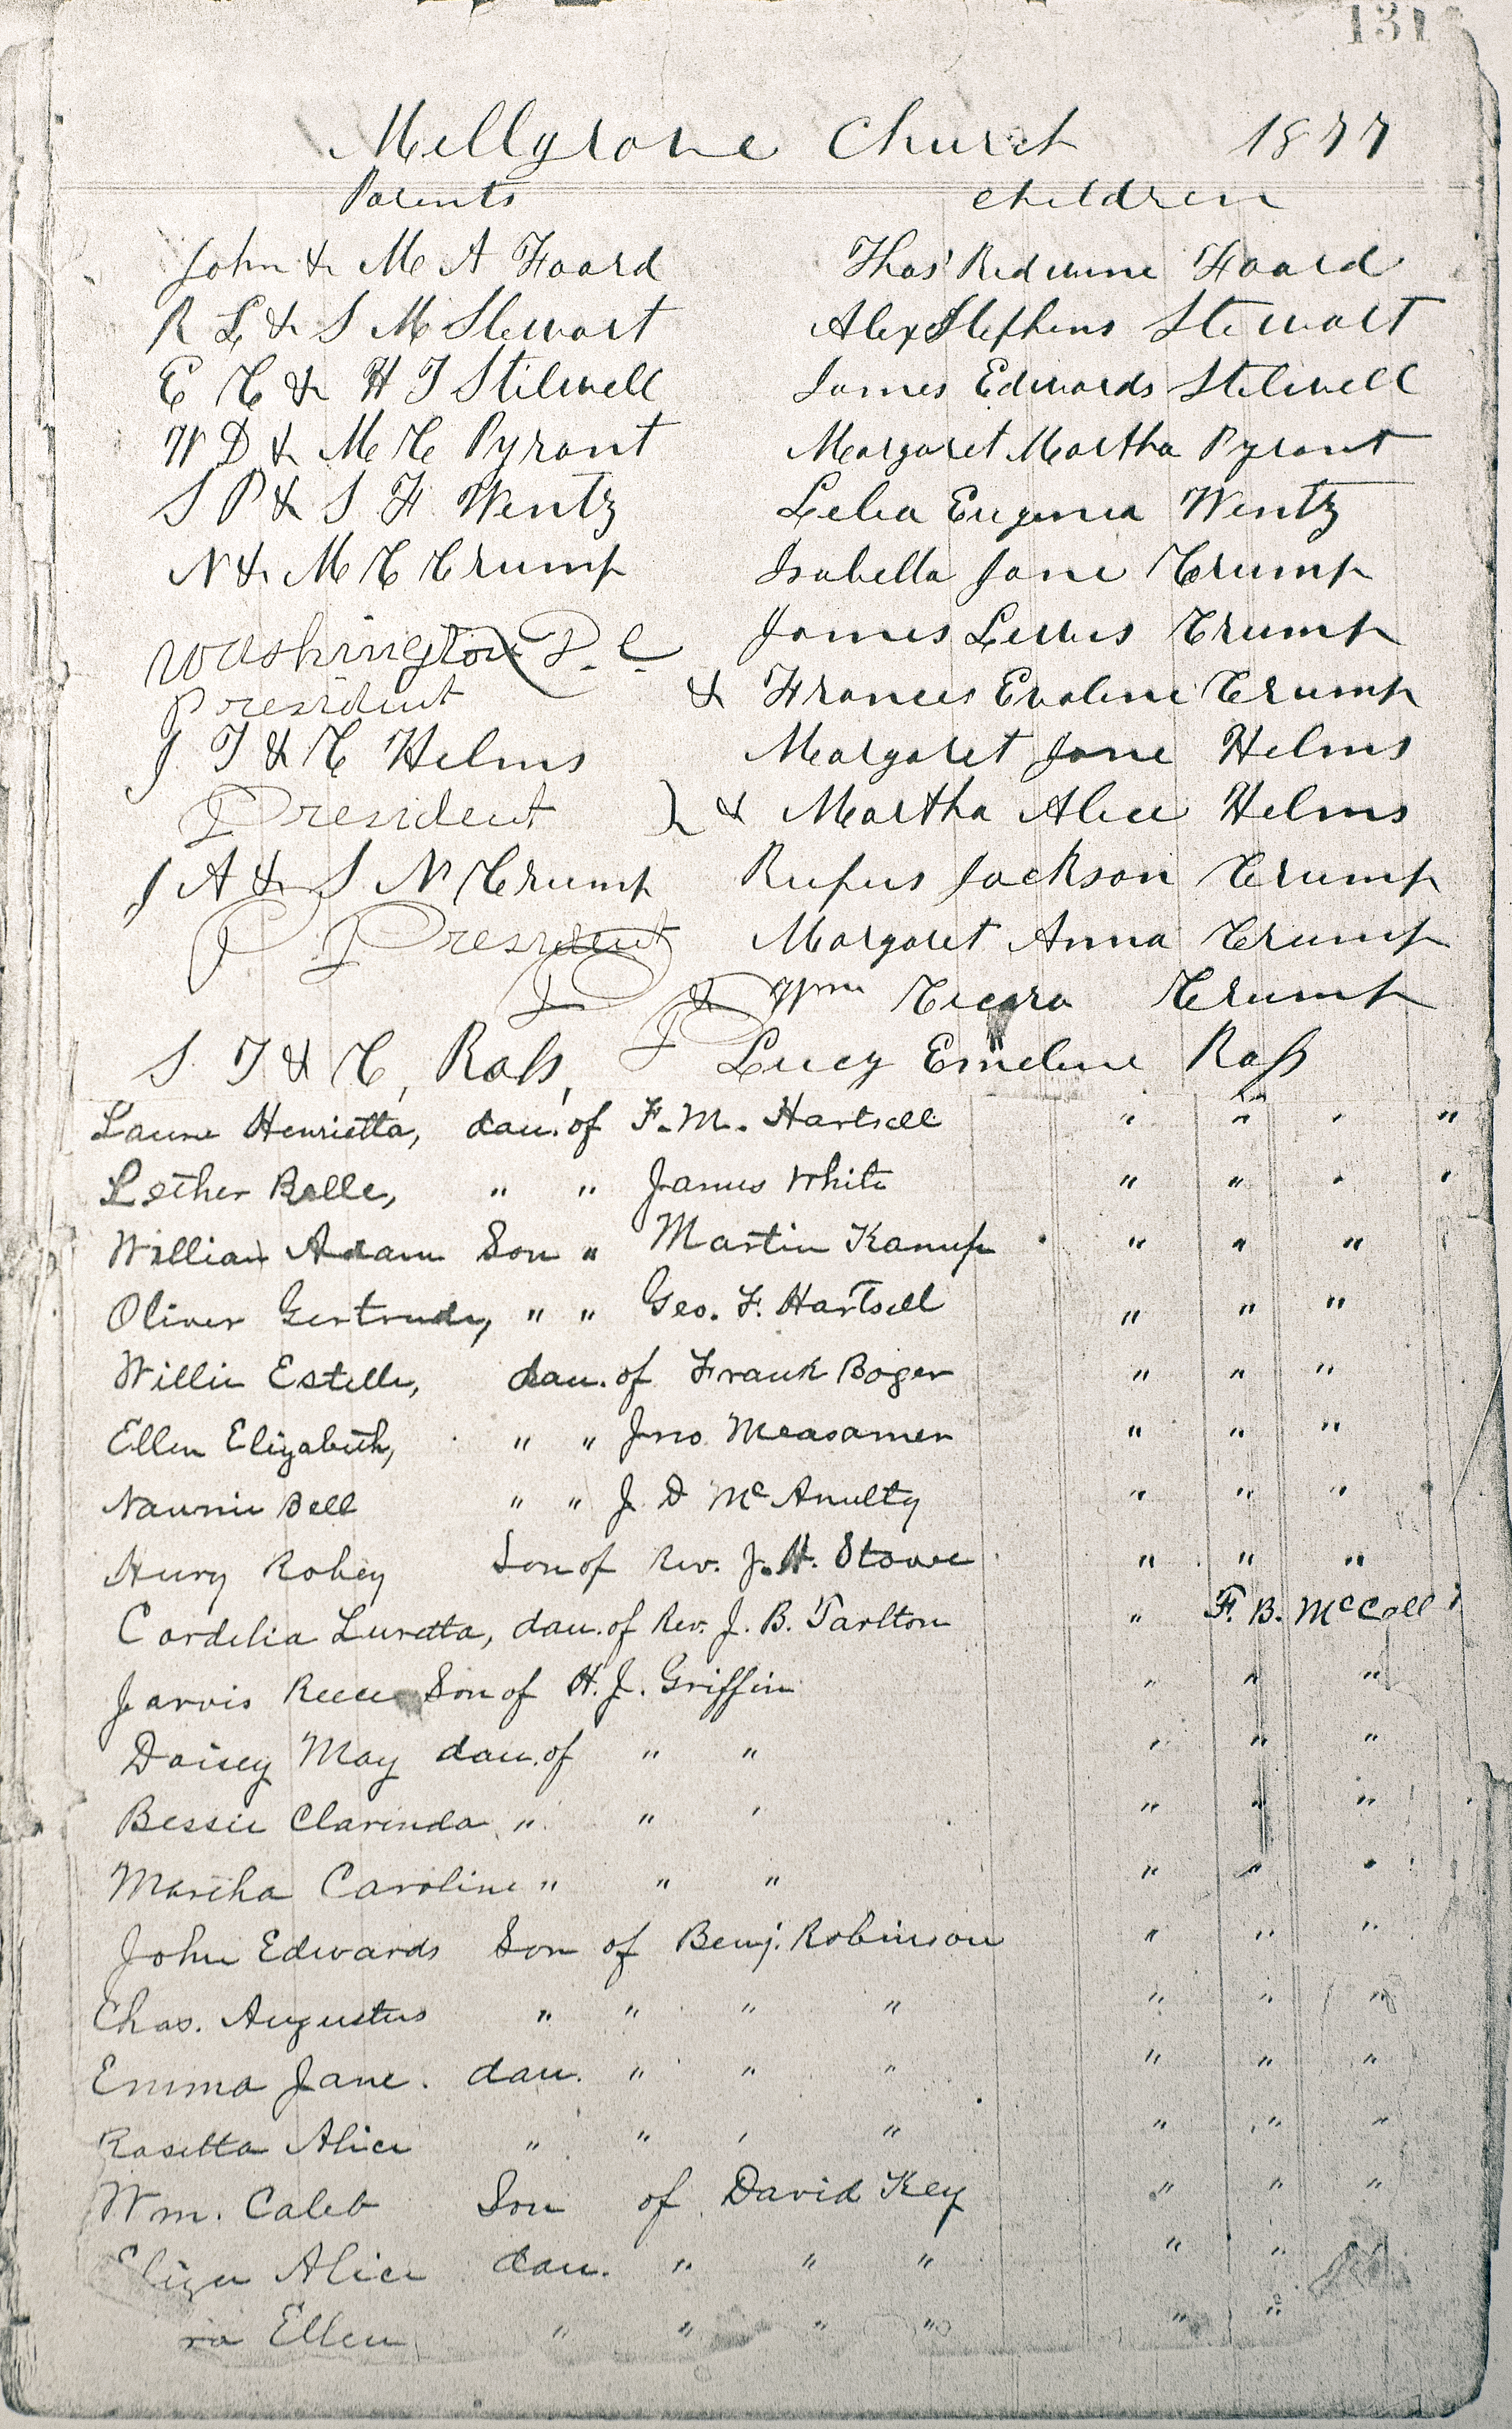 131
Millgrove Church 1877
Parents Children
John & M A Foard Thos' Redwine Foard
R L & S M Stewart Alex Stephens Stewart
E C & H J Stilwell James Edwards Stilwell
W D & M C Pyrant Margaret Martha Pyrant
S P & S F Wentz Lelia Eugenia Wentz
N & M C Crump Isabella Jane Crump
James Lewis Crump
Washington D. C.
President & Frances Evaline Crump
J. T & C Helms Margaret Jane Helms
President } & Martha Alice Helms
J A & S N Crump Rufus Jackson Crump
P President Margaret Anna Crump
& Wm Cicero Crump
S. T & C, Ross, Lucy Emeline Ross
Laura Henrietta, dau. of F. M. Hartsell " " " "
Lether Belle, " " James White " " " "
William Adam Son " Martin Kanup " " "
Oliver Gertrude, " " Geo. F. Hartsell " " "
Willie Estelle, dau. of Frank Boger " " "
Ellen Elizabeth, " " Jno Measamer " " "
Nannie Bell " " J D McAnulty " " "
Hury Robey Son of Rev. J. H. Stowe " " "
Cordelia Luretta, dau. of Rev. J. B. Tarlton " F. B. McCall
Jarvis Reece Son of H. J. Griffin " " "
Daisey May dau. of " " " " "
Bessie Clarinda " " " " " "
Martha Caroline " " " " " "
John Edwards Son of Benj. Robinson " " "
Chas. Augustus " " " " " " "
Emma Jane. dau. " " " " " "
Rosetta Alice " " " " " " "
Wm. Caleb Son of David Key " " "
Eliza Alice dau. " " " " "
Ellen " " " " " "